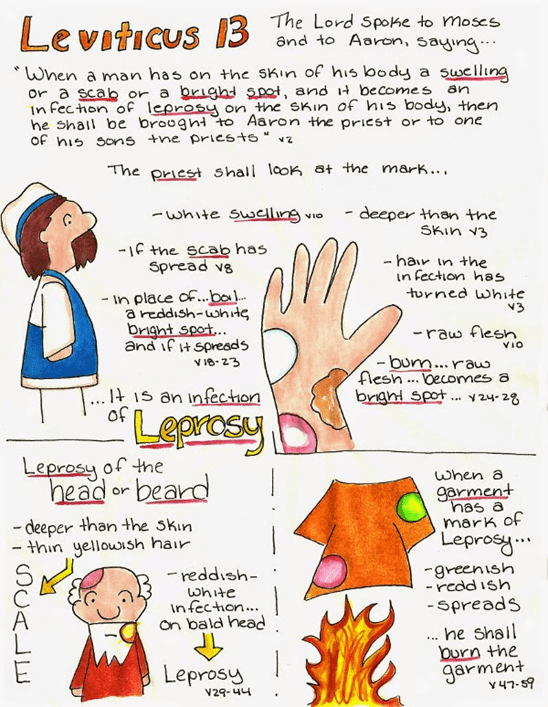 Leviticus 13
The Lord spoke to Moses
and to Aaron, saying...
"When a man has on the skin of his body a swelling
or a scab or a bright spot, and it becomes an
infection of leprosy on the skin of his body, then
he shall be brought to Aaron the priest or to one
of his sons the priests" v2
The priest shall look at the mark...
- white swelling v10
- if the scab has
spread v8
- in place of...boil...
a reddish-white,
bright spot...
and if it spreads
v18-23
- deeper than the
skin v3
- hair in the
infection has
turned white
v3
- raw flesh
v10
- burn... raw
flesh... becomes a
bright spot... v24-28
...It is an infection
of Leprosy
Leprosy of the
head or beard
- deeper than the skin
- thin yellowish hair
SCALE
- reddish-
white
infection...
on bald head
Leprosy
v29-44
When a
garment
has a
mark of
Leprosy...
- greenish
- reddish
- spreads
... he shall
burn the
garment
v47-59